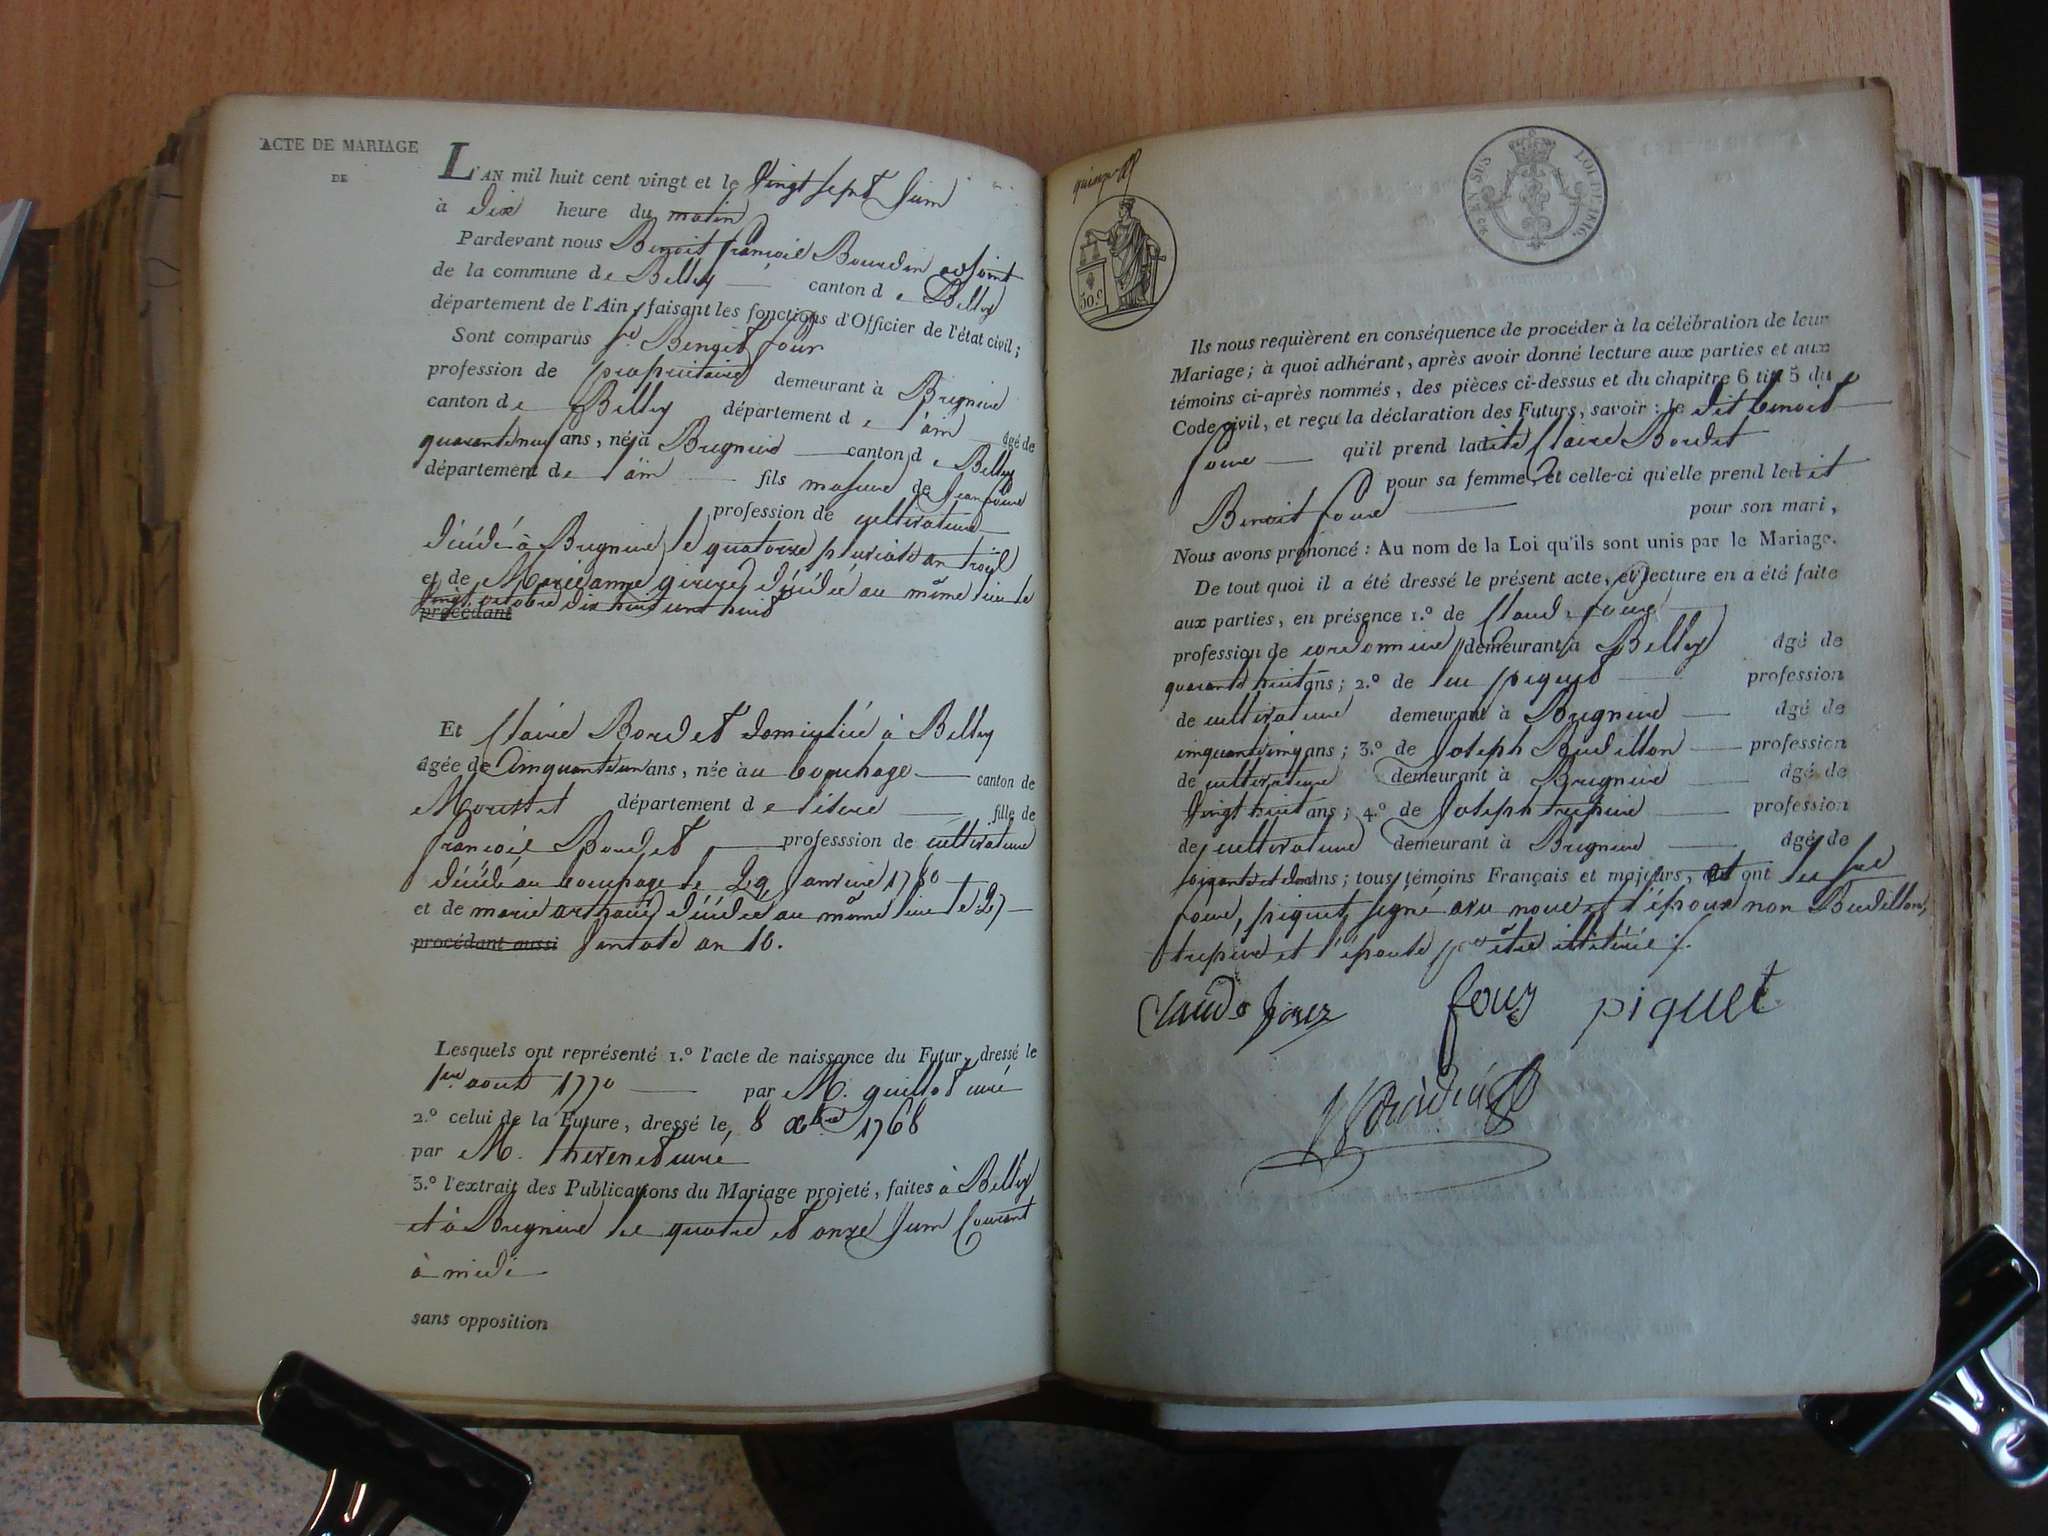 ACTE DE MARIAGE
DE
L'AN mil huit cent vingt et le Vingt sept Juin
à dix heure du matin
Pardevant nous Benoit françois Bourdin adjoint
de la commune de Belley canton de Belley
département de l'Ain, faisant les fonctions d'Officier de l'état civil;
Sont comparus Sr. Benoit four
profession de propriétaire demeurant à Bregnier
canton de Belley département de l'ain âgé de
quarante neuf ans, né à Bregnier canton de Belley
département de l'ain fils majeur de
profession de cultivateur
décédé à Bregnier le quatorze pluviose an trois
et de Marie anne décédée au même lieu le
Vingt octobre dix huit cent huit
procédant
Et Claire Bordet domiciliée à Belley
âgée de Cinquante un ans, née au bouchage canton de
Morestel département de l'isere fille de
françois Bordet professsion de cultivateur
décédé au bouchage le 29 janvier 1780
et de marie décédée au même lieu le 27
procédant aussi ventose an 10.
Lesquels ont représenté 1.º l'acte de naissance du Futur, dressé le
1er aout 1770 par M. guillot curé
2.º celui de la Future, dressé le 8 xbre 1768
par M. thevenet curé
3.º l'extrait des Publications du Mariage projeté, faites à Belley
et à Bregnier les quatre et onze Juin Courant
à midi
sans opposition
quinze
50.c
LOI DE 1816.
Ils nous requièrent en conséquence de procéder à la célébration de leur
Mariage; à quoi adhérant, après avoir donné lecture aux parties et aux
témoins ci-après nommés, des pièces ci-dessus et du chapitre 6 tit 5 du
Code civil, et reçu la déclaration des Futurs, savoir: le dit benoit
four qu'il prend ladite Claire Bordet
pour sa femme, et celle-ci qu'elle prend ledit
Benoit four pour son mari,
Nous avons prononcé: Au nom de la Loi qu'ils sont unis par le Mariage.
De tout quoi il a été dressé le présent acte, et lecture en a été faite
aux parties, en présence 1.º de Claude four
profession de cordonnier demeurant à Belley âgé de
quarante huit ans; 2.º de luc piquet profession
de cultivateur demeurant à Bregnier âgé de
cinquante cinq ans; 3.º de Joseph Budillon profession
de cultivateur demeurant à Bregnier âgé de
Vingt huit ans; 4.º de Joseph trepier profession
de cultivateur demeurant à Bregnier âgé de
ans; tous témoins Français et majeurs, et ont les sus
four, piquet signé avec nous et l'époux non Budillon,
trepier et l'épouse pr être illitérés ./.
Claude fourz four piquet
Bourdin